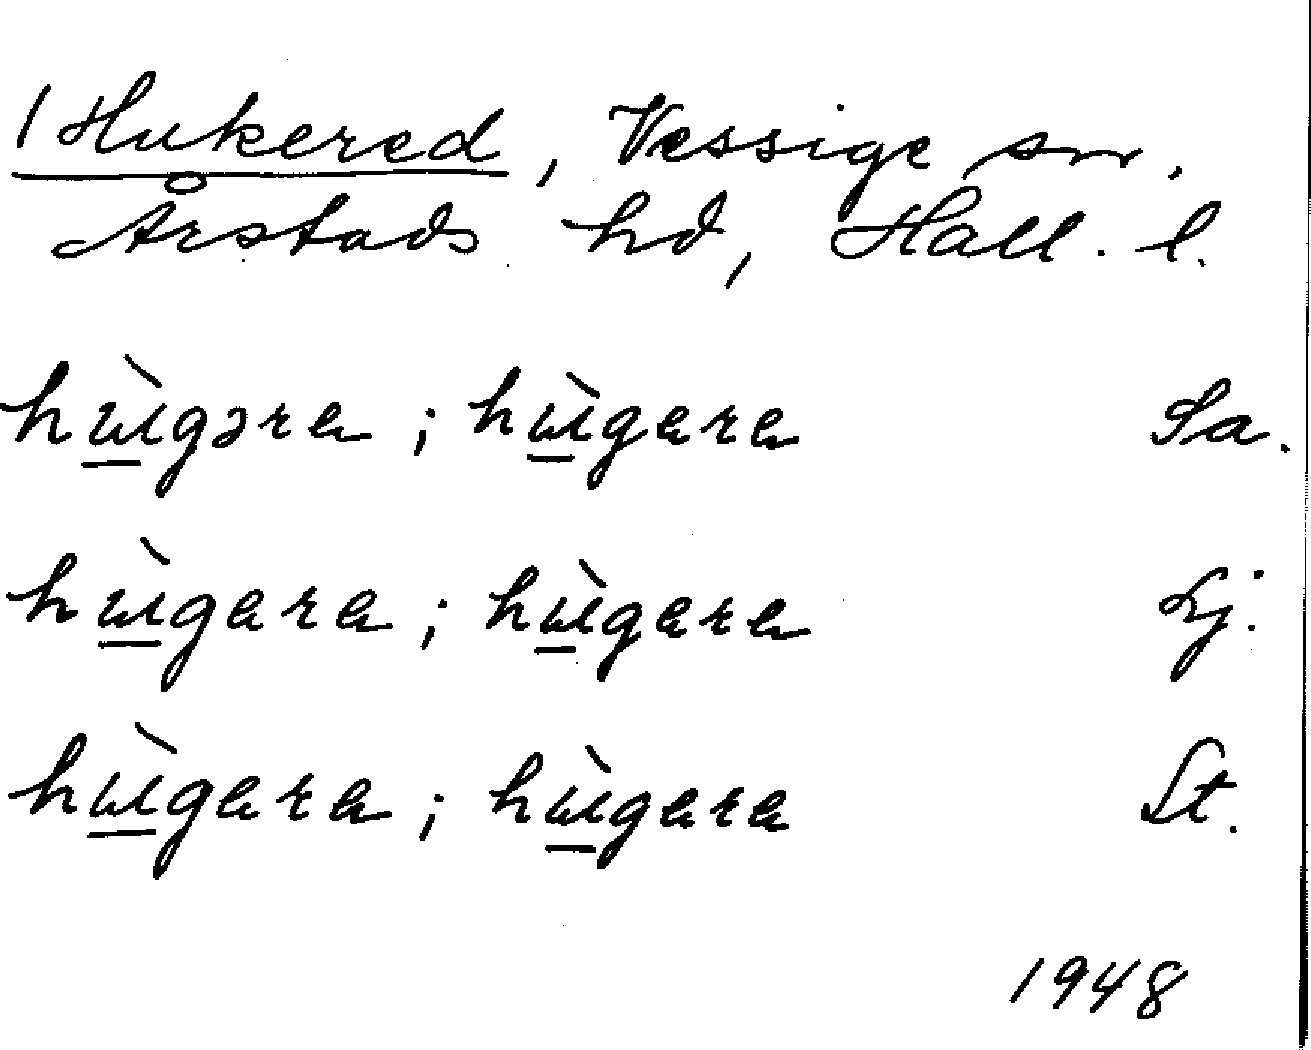 1 Hukered, Vessige sn.
Årstads hd, Hall. l.
hù̲gəra ; hù̲gara Sa.
hù̲gara ; hù̲gara Lj.
hù̲gara ; hù̲gara St.
1948